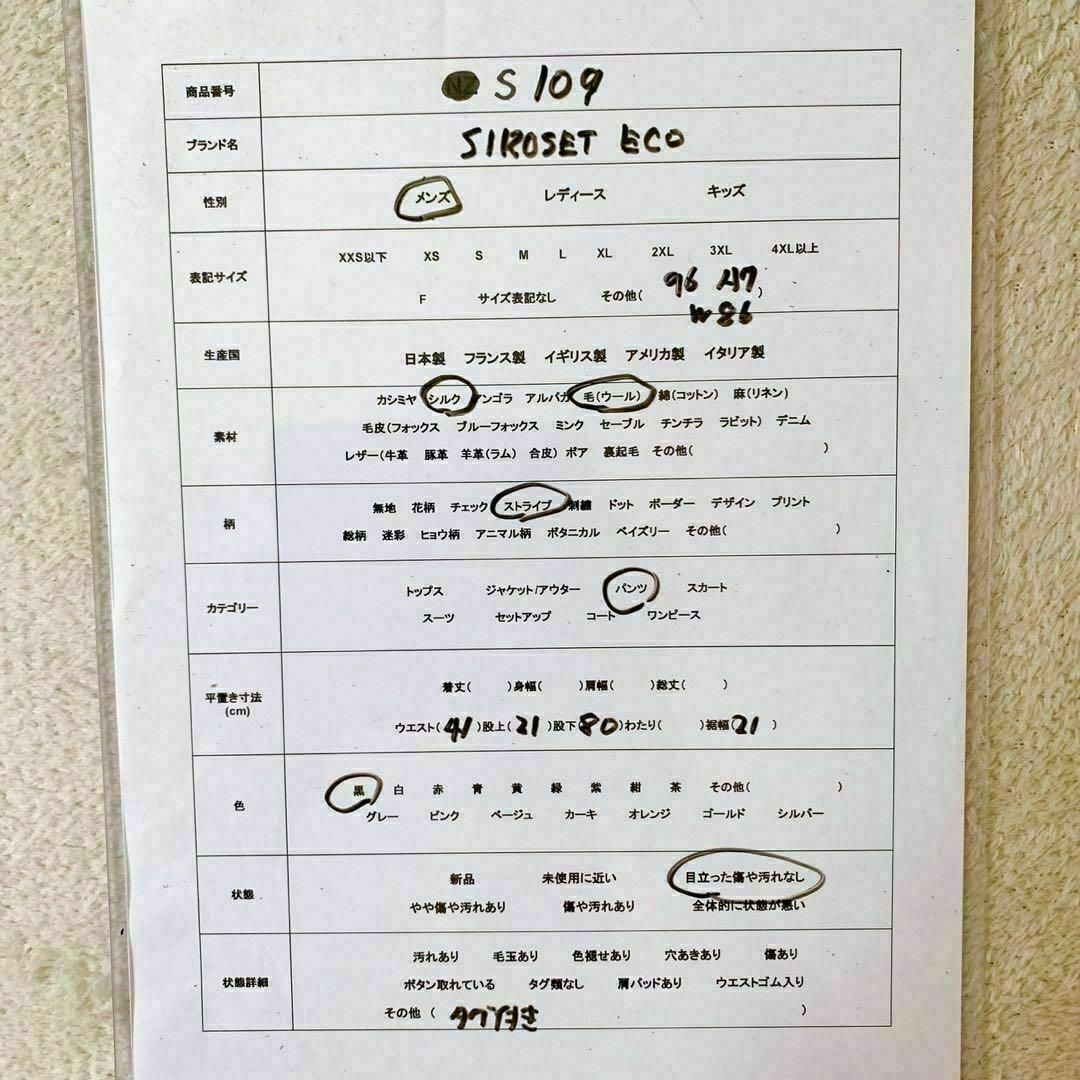 商品番号 S 109
ブランド名 SIROSET ECO
性別 メンズ レディース キッズ
XXS以下 XS S M L XL 2XL 3XL 4XL以上
表記サイズ
F サイズ表記なし その他( 96 )
W86
生産国 日本製 フランス製 イギリス製 アメリカ製 イタリア製
カシミヤ シルク アンゴラ アルパカ 毛(ウール) 綿(コットン) 麻(リネン)
素材 毛皮(フォックス ブルーフォックス ミンク セーブル チンチラ ラビット) デニム
レザー(牛革 豚革 羊革(ラム) 合皮) ボア 裏起毛 その他( )
柄 無地 花柄 チェック ストライプ 刺繍 ドット ボーダー デザイン プリント
総柄 迷彩 ヒョウ柄 アニマル柄 ボタニカル ペイズリー その他( )
カテゴリー トップス ジャケット/アウター パンツ スカート
スーツ セットアップ コート ワンピース
平置き寸法 着丈( )身幅( )肩幅( )総丈( )
(cm)
ウエスト( 41 )股上( 21 )股下( 80 )わたり( )裾幅( 21 )
色 黒 白 赤 青 黄 緑 紫 紺 茶 その他( )
グレー ピンク ベージュ カーキ オレンジ ゴールド シルバー
状態 新品 未使用に近い 目立った傷や汚れなし
やや傷や汚れあり 傷や汚れあり 全体的に状態が悪い
汚れあり 毛玉あり 色褪せあり 穴あきあり 傷あり
状態詳細 ボタン取れている タグ類なし 肩パッドあり ウエストゴム入り
その他 ( )